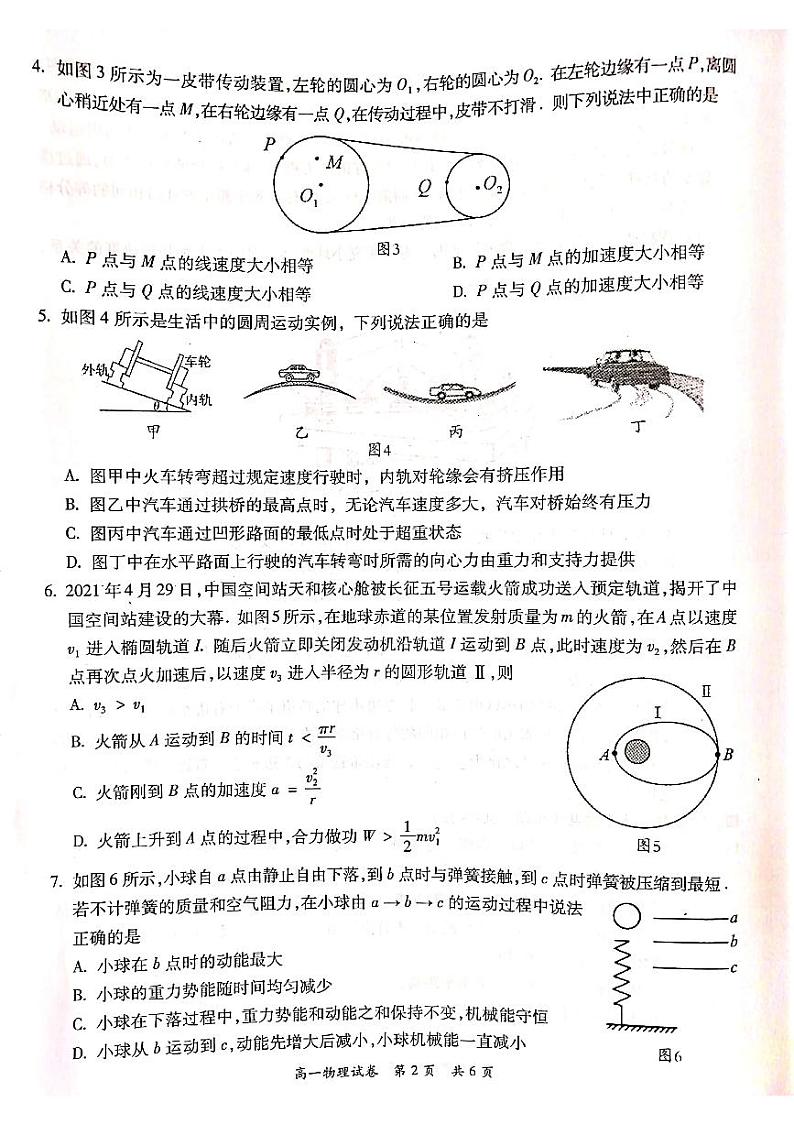 4. 如图3所示为一皮带传动装置,左轮的圆心为O₁,右轮的圆心为O₂. 在左轮边缘有一点P,离圆
心稍近处有一点M,在右轮边缘有一点Q,在传动过程中,皮带不打滑. 则下列说法中正确的是
P
M
O₁
Q
O₂
图3
A. P点与M点的线速度大小相等
B. P点与M点的加速度大小相等
C. P点与Q点的线速度大小相等
D. P点与Q点的加速度大小相等
5. 如图4所示是生活中的圆周运动实例，下列说法正确的是
外轨
车轮
内轨
θ
甲
乙
丙
丁
图4
A. 图甲中火车转弯超过规定速度行驶时，内轨对轮缘会有挤压作用
B. 图乙中汽车通过拱桥的最高点时，无论汽车速度多大，汽车对桥始终有压力
C. 图丙中汽车通过凹形路面的最低点时处于超重状态
D. 图丁中在水平路面上行驶的汽车转弯时所需的向心力由重力和支持力提供
6. 2021年4月29日,中国空间站天和核心舱被长征五号运载火箭成功送入预定轨道,揭开了中
国空间站建设的大幕. 如图5所示,在地球赤道的某位置发射质量为m的火箭,在A点以速度
v₁进入椭圆轨道I. 随后火箭立即关闭发动机沿轨道I运动到B点,此时速度为v₂,然后在B
点再次点火加速后,以速度v₃进入半径为r的圆形轨道Ⅱ,则
A. v₃ > v₁
B. 火箭从A运动到B的时间 t < πr/v₃
C. 火箭刚到B点的加速度 a = v₂²/r
D. 火箭上升到A点的过程中,合力做功 W > 1/2 mv₁²
Ⅱ
Ⅰ
A
B
图5
7. 如图6所示,小球自a点由静止自由下落,到b点时与弹簧接触,到c点时弹簧被压缩到最短.
若不计弹簧的质量和空气阻力,在小球由a→b→c的运动过程中说法
正确的是
A. 小球在b点时的动能最大
B. 小球的重力势能随时间均匀减少
C. 小球在下落过程中,重力势能和动能之和保持不变,机械能守恒
D. 小球从b运动到c,动能先增大后减小,小球机械能一直减小
a
b
c
图6
高一物理试卷 第2页 共6页